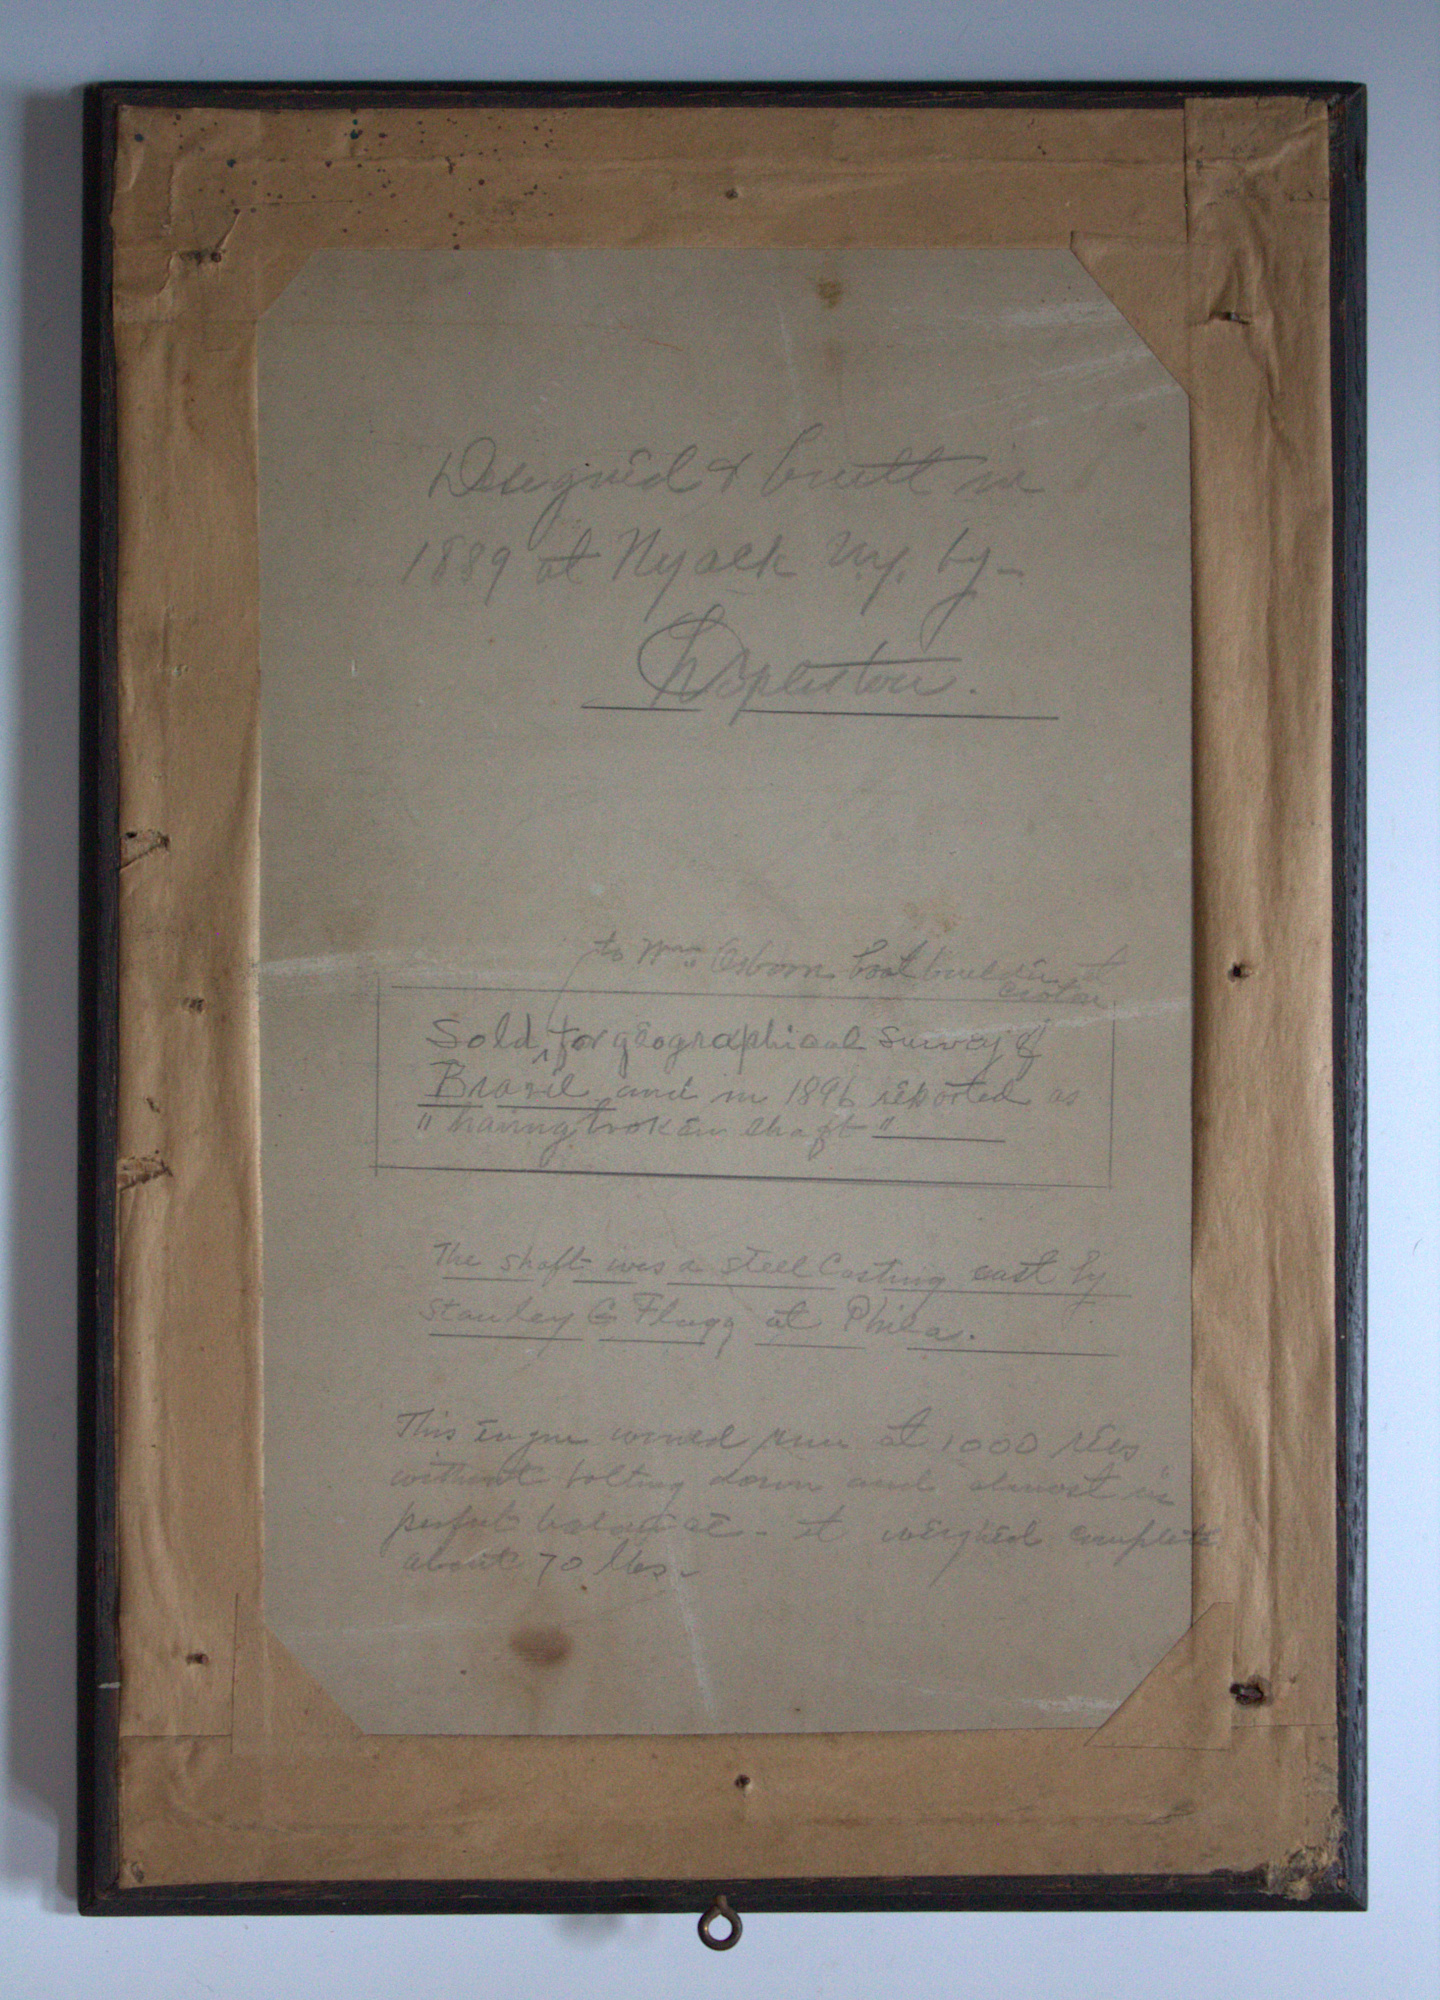 Designed & built in
1889 at Nyack N.y. by
to Wm Osborn boat builder at
Croton.
Sold ^ for geographical Survey of
Brazil and in 1896 reported as
"having broken shaft"
The shaft was a steel Casting cast by
Stanley G Flagg at Phila.
This Engine would run at 1000 revs
without bolting down and almost in
perfect balance - it weighed complete
about 70 lbs.